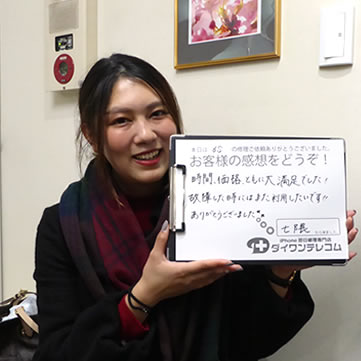 本日は 6S の修理ご依頼ありがとうございました。
お客様の感想をどうぞ！
時間、価格、ともに大満足でした！
故障した時にはまた利用したいです!!
ありがとうございました
iPhone 即日修理専門店
ダイワンテレコム